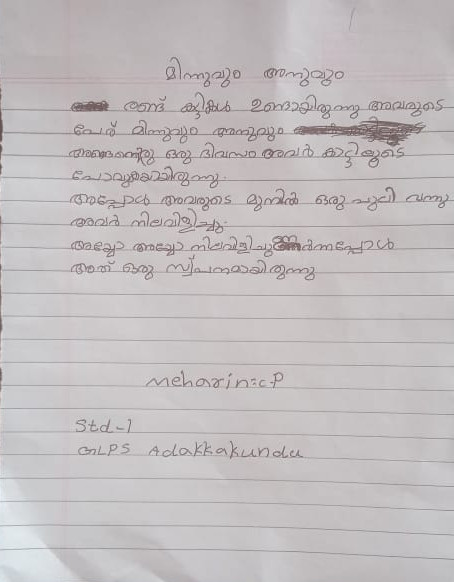 മിന്നുവും അന്നുവും
രണ്ട് കുട്ടികൾ ഉണ്ടായിരുന്നു അവരുടെ
പേര് മിന്നുവും അന്നുവും
അങ്ങനെ ഒരു ദിവസം അവർ കാട്ടിലൂടെ
പോവുകയായിരുന്നു.
അപ്പോൾ അവരുടെ മുന്നിൽ ഒരു പുലി വന്നു
അവർ നിലവിളിച്ചു.
അയ്യോ അയ്യോ നിലവിളിച്ചു
അത് ഒരു സ്വപ്നമായിരുന്നു
Meharin=C.P
Std-1
GLPS Adakkakundu